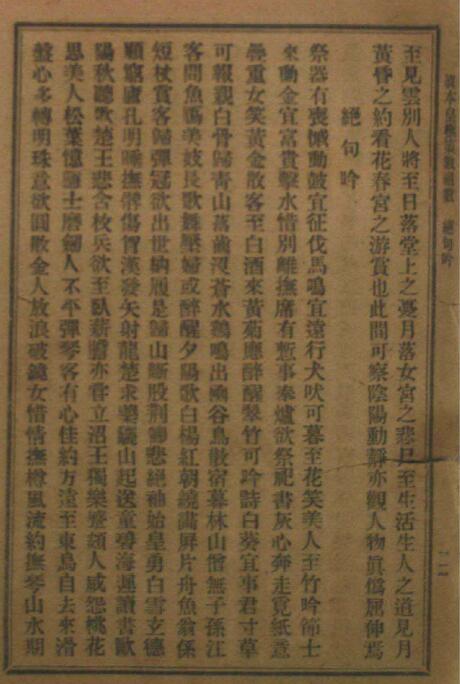 至見雲別人將至日落堂上之憂月落女宮之悲日至生活生人之道見月
黃昏之約看花春宮之游賞也此間可察陰陽動靜亦觀人物眞僞屈伸焉
絕句吟
祭器有喪慽動皷宜征伐馬鳴宜遠行犬吠可暮至花笑美人至竹吟節士
來動金宜富貴擊水惜別離撫席有慙事奉爐欲祭祀書灰心奔走覓紙意
疊重女笑黃金散客至白酒來黃菊應醉醒翠竹可吟詩白葵宜事君寸草
可報親白骨歸青山落齒沒蒼水鶴鳴出幽谷鳥散宿暮林山僧無子孫江
客問魚鴈美妓長歌舞壓婦或醉醒夕陽歌白楊紅朝繞滿屏片舟魚翁係
短杖賞客歸彈冠欲出世納履是歸山斷股荆卿悲絕袖始皇勇白雲玄德
顧竄廬孔明睡撫髀傷智漢發矢射龍楚求藥驪山起送童碧海遲讀書歐
陽秋聽歌楚王悲含枚兵欲至臥薪嘗亦甞立沼王獨樂蹙頞人咸怨桃花
思美人松葉憶隱士磨劒人不平彈琴客有心佳約方遠至東鳥自去來滑
盤心多轉明珠意欲圓散金人放浪破鏡女惜情撫樽風流約撫琴山水期
絕句吟